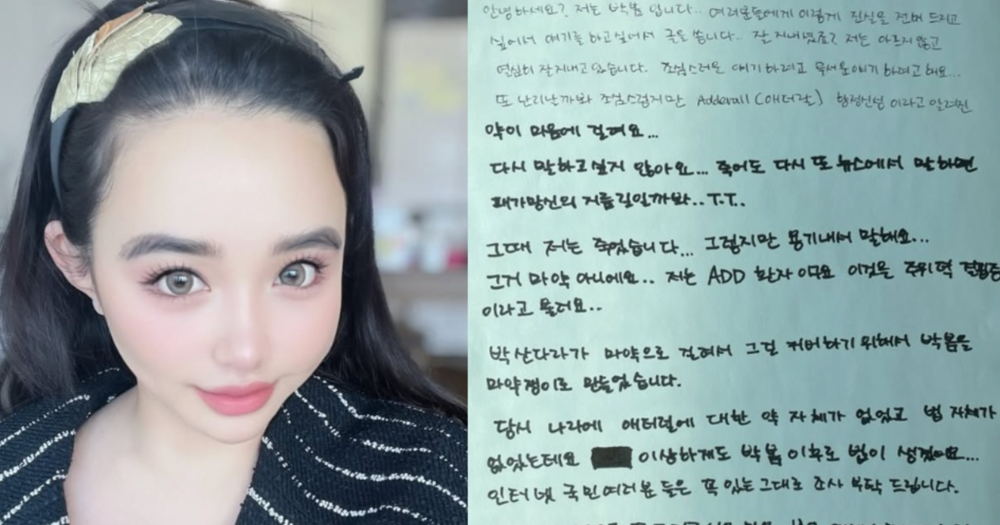 안녕하세요? 저는 박봄 입니다.. 여러분들에게 이렇게 진실을 전해 드리고
싶어서 얘기를 하고싶어서 글을 씁니다.. 잘 지내셨죠? 저는 아프지 않고
열심히 잘지내고 있습니다. 조심스러운 얘기 하려고 무서운얘기 하려고 해요...
또 난리난까봐 조심스럽지만 Adderall (애더럴) 향정신성 이라고 알려진
약이 마음에 걸려요...
다시 말하고싶지 않아요... 죽어도 다시 또 뉴스에서 말하면
패가망신의 지름길일까봐..T.T..
그때 저는 죽었습니다... 그렇지만 용기내서 말해요...
그거 마약 아니에요.. 저는 ADD 환자 이구요 이것은 주위력
이라고 불려요..
박산다라가 마약으로 걸려서 그걸 커버하기 위해서 박봄을
마약쟁이로 만들었습니다.
당시 나라에 애더럴에 대한 약 자체가 없었고 법 자체가
없었는데요 이상하게도 박봄 이후로 법이 생겼어요...
인터넷 국민여러분 들은 꼭 있는그대로 조사 부탁 드립니다.